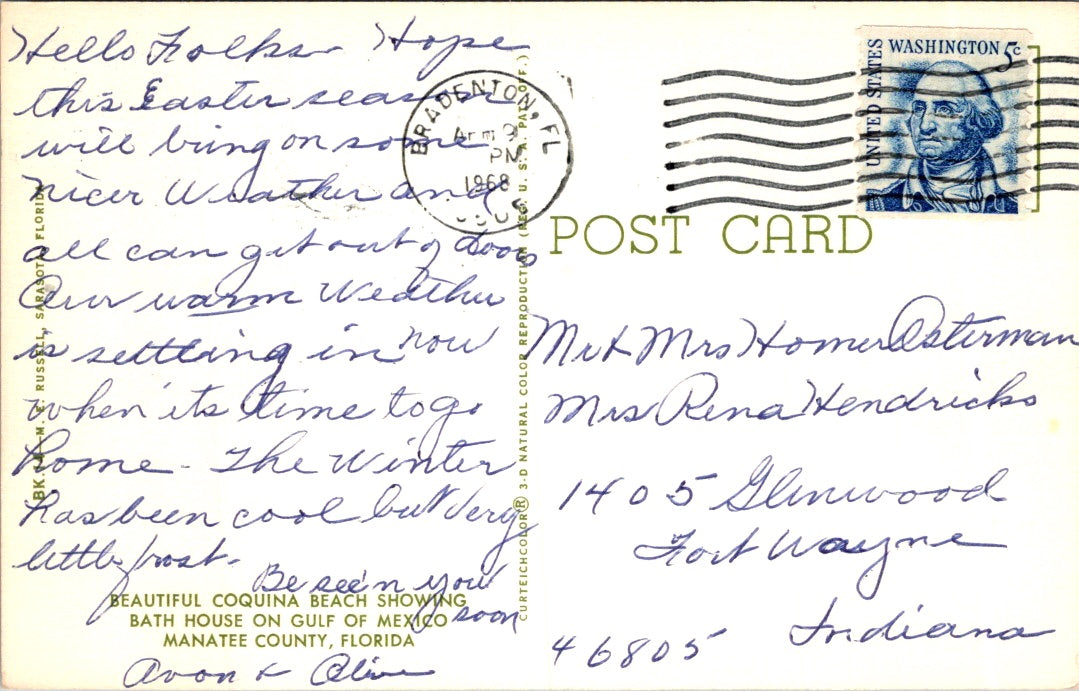 Hello Folks - Hope
this Easter season
will bring on some
nicer Weather and
all can get out of doors
Our warm Weather
is settling in now
when its time to go
home - The Winter
has been cool but Very
little frost.
Be see'n you
soon
Avon & Olive
BEAUTIFUL COQUINA BEACH SHOWING
BATH HOUSE ON GULF OF MEXICO
MANATEE COUNTY, FLORIDA
M. E. RUSSELL, SARASOTA, FLORIDA
CURTEICHCOLOR® 3-D NATURAL COLOR REPRODUCTION (REG. U. S. A. PAT. OFF.)
BRADENTON, FL
9
PM
1968
UNITED STATES
WASHINGTON 5c
POST CARD
Mr & Mrs Homer Osterman
Mrs Rena Hendricks
1405 Glenwood
Fort Wayne
Indiana
46805